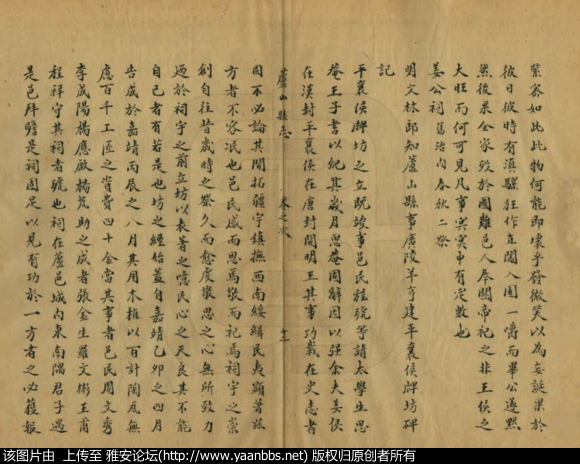 緊密如此此物何能即壞乎發微笑以為妄誕果於
彼日彼時有滇驟狂作直闖入園一嚼而畢公遂默
然後果全家歿於國難邑人奉關帝祀之非王侯之
大旺而何可見凡事冥冥中有定數也
姜公祠 舊治內春秋二祭
明文林郎知蘆山縣事廣陵羊亨建平襄侯牌坊碑
記
平襄侯牌坊之立既竣事邑民程號等請太學生思
菴王子書以紀其歲月思菴固辭因以強余夫姜侯
在漢封平襄侯在唐封開明王其事功載在史志者
蘆山縣志 卷之
固不必論其開拓疆宇鎮撫西南綏緝民夷顯著茲
方者不容泯也邑民感而思焉敬而祀焉祠宇之崇
創自往昔歲時之祭久而愈虔敬思之心無所致力
迺於祠宇之前立坊以表著之噫民心之天良其不能
自已者有若是也坊之經始蓋自嘉靖乙卯之四月
告成於嘉靖丙辰之八月其用木植以百計陶瓦無
慮百千工匠之資費四十余當其事者邑民周文秀
李咸陽楊應啟楊芄助之成者張金生羅文彬王甫
程祥守其祠者號也祠在蘆邑城內東南隅君子過
是邑拜瞻是祠固足以見有功於一方者之必獲報
该图片由 上传至 雅安论坛(http://www.yaanbbs.net) 版权归原创者所有